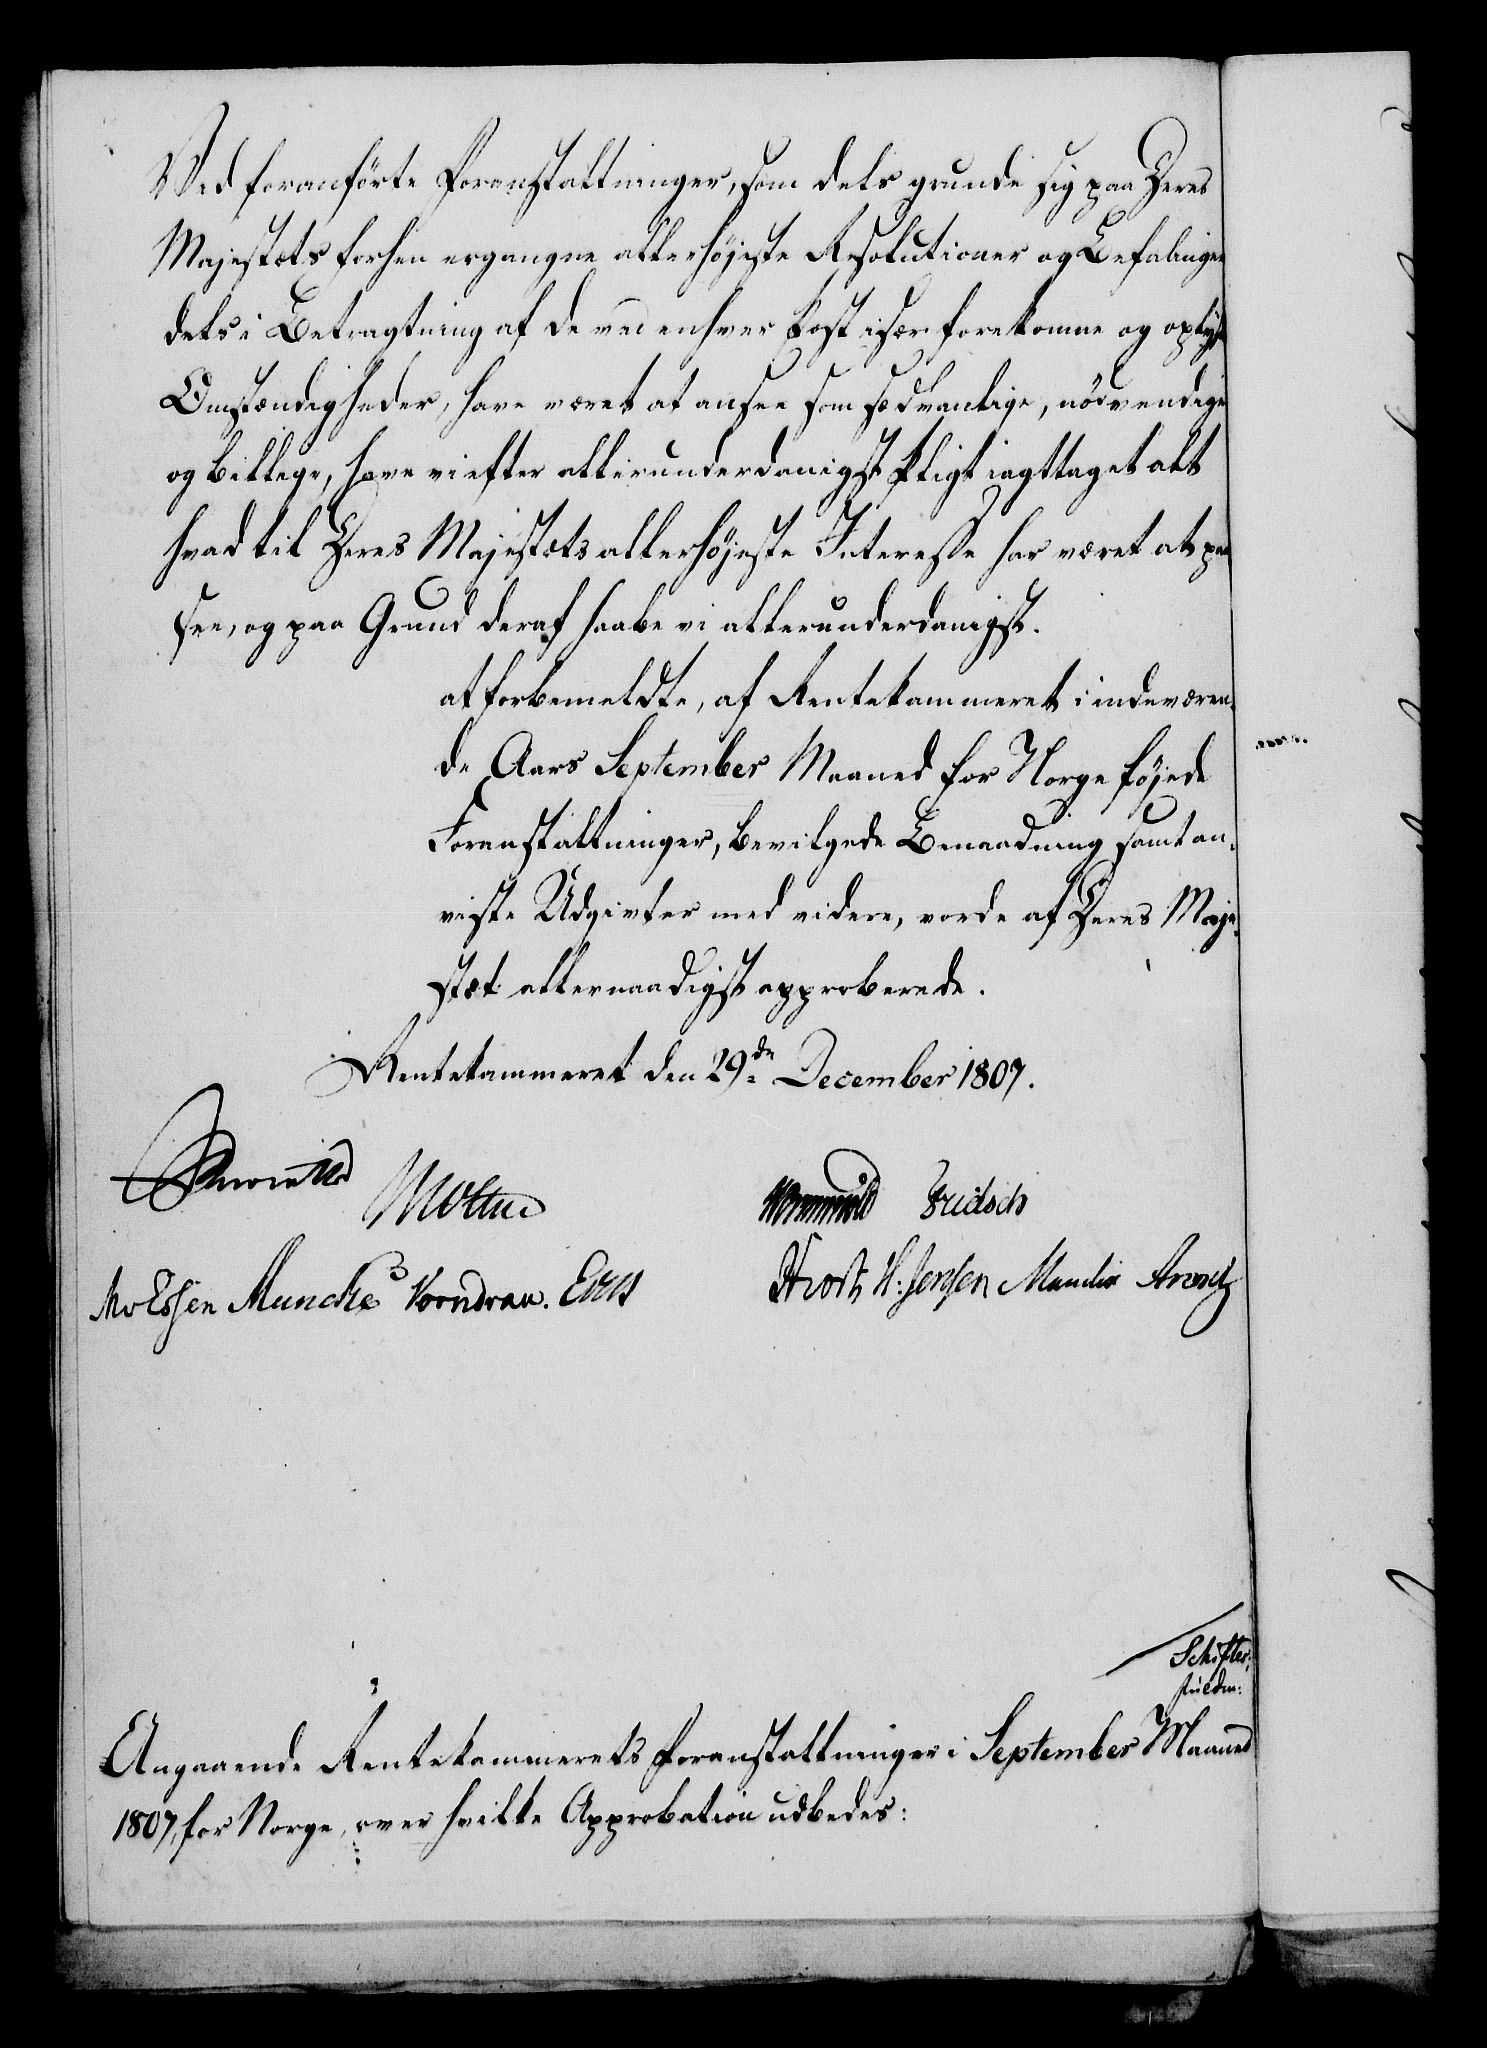 Ved foranførte Foranstaltninger, som dels grunde sig paa Deres
Majestæts forhen ergangne allerhøjeste Resolutioner og Befalinger
dels i Betragtning af de ved enhver Post især forekomne og oplyste
Omstændigheder, have været at ansee som sædvanlige, nödvendige
og billige, have vi efter allerunderdanigst Pligt iagttaget alt
hvad til Deres Majestæts allerhøjeste Interesse har været at paa
see, og paa Grund deraf haabe vi allerunderdanigst.
at forbemeldte, af Rentekammeret i indeværen¬
de Aars September Maaned for Norge føjede
Foranstaltninger, bevilgede Benaadning samt an¬
viste Udgivter med videre, vorde af Deres Maje¬
stæt allernaadigst approberede.
Rentekammeret den 29de December 1807.
Moltke
Wormskiold Fridsch
MvEssen Muncke Vorndran.
Hroth H. Jensen Mandix Arentz
Schifter.
Angaaende Rentekammerets Foranstaltninger i September Maaned
1807, for Norge, over hvilke Approbation udbedes: